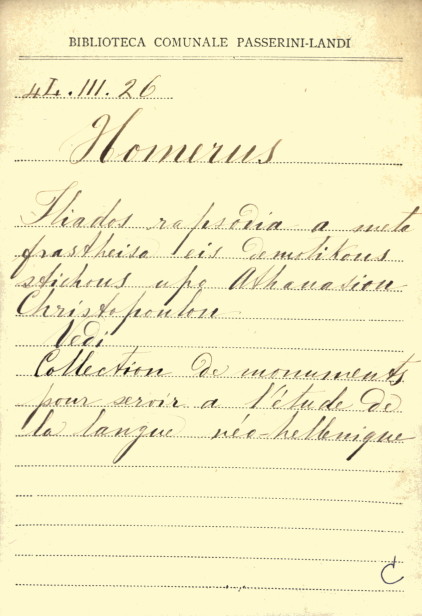 BIBLIOTECA COMUNALE PASSERINI-LANDI
4L.III.26
Homerus
Iliados rapsodia a meta
frastheisa eis demotikous
stichous upo Athanasion
Christopoulon
Vedi
Collection de monuments
pour servir a l'étude de
la langue néo-hellenique
C